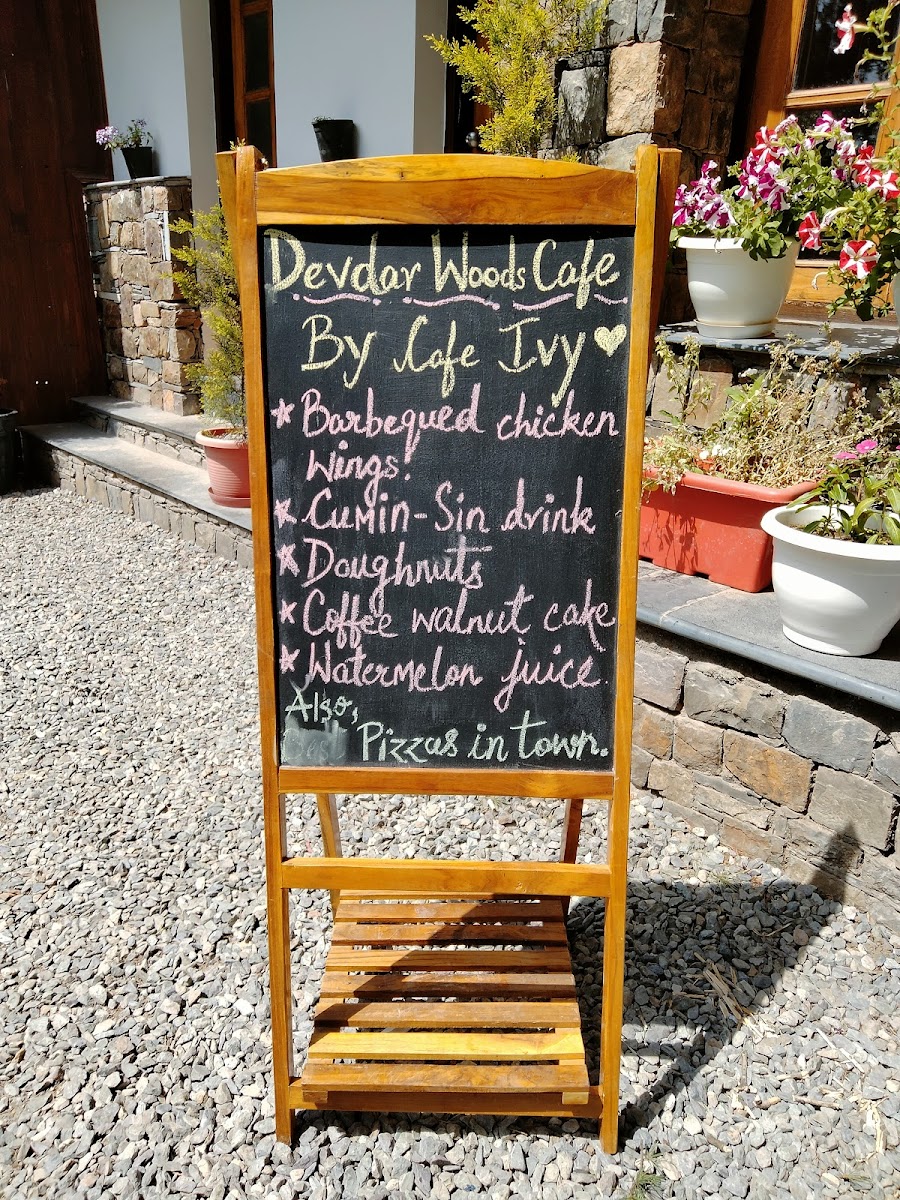 Devdar Woods Cafe
By Cafe Ivy
Barbequed chicken
Wings!
Cumin-Sin drink
Doughnuts
Coffee walnut cake
Watermelon juice.
Also,
Best Pizzas in town.